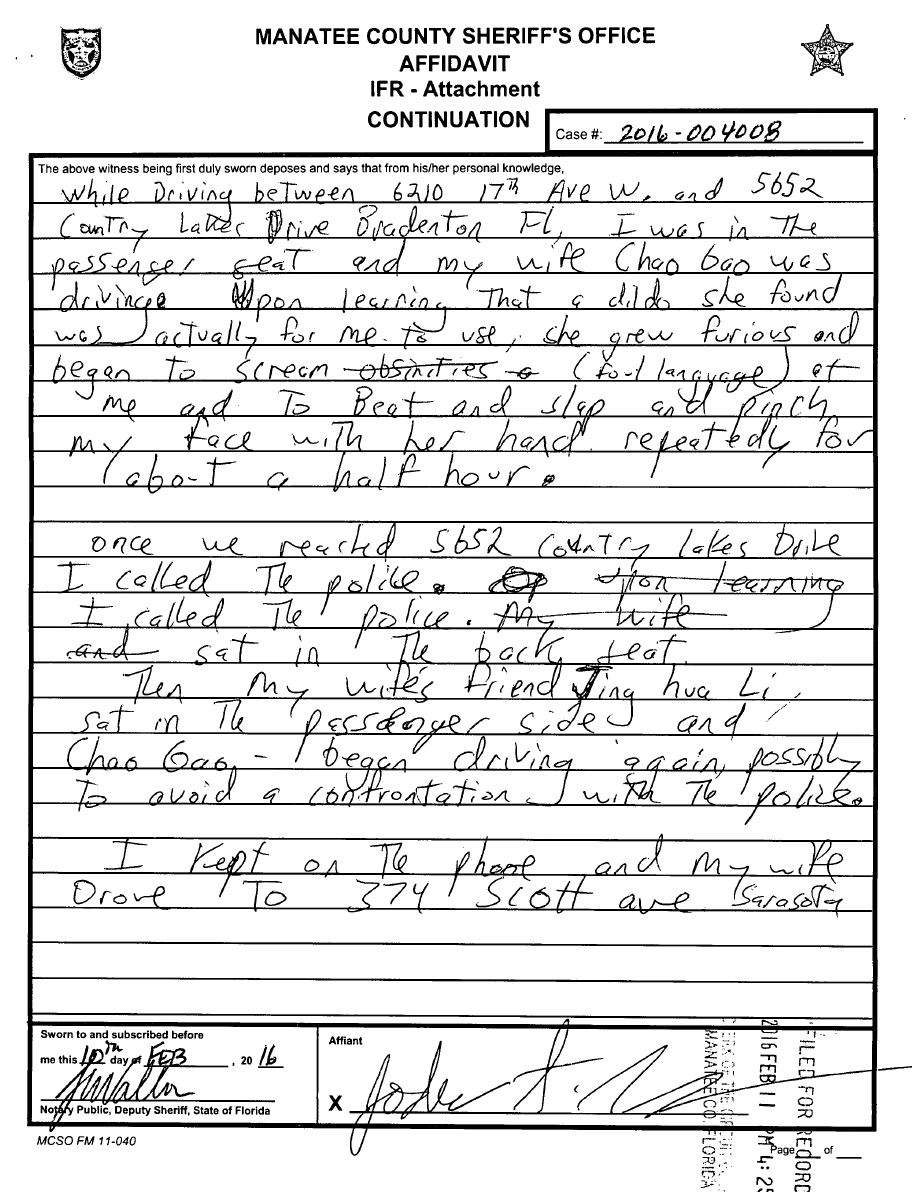 MANATEE COUNTY SHERIFF'S OFFICE
AFFIDAVIT
IFR - Attachment
CONTINUATION
Case #: 2016-004008
The above witness being first duly sworn deposes and says that from his/her personal knowledge,
while Driving between 6210 17th Ave W. and 5652
Country Lakes Drive Bradenton FL, I was in The
passenger seat and my wife Chao Gao was
driving. Upon learning That a dildo she found
was actually for me to use, she grew furious and
began To scream obsinities (foul language) at
me and To Beat and slap and pinch
my face with her hand repeatedly for
about a half hour.
once we reached 5652 Country lakes Drive
I called The police. Upon learning
I called The police. My wife
and sat in The back seat.
Then My wife's friend Jing hua Li,
sat in The passdenger side and
Chao Gao, - began driving again, possibly
To avoid a confrontation with The police.
I Kept on The phone and my wife
Drove To 374 Scott ave Sarasota
Sworn to and subscribed before
me this 10th day of FEB, 20 16
Notary Public, Deputy Sheriff, State of Florida
Affiant
X
MCSO FM 11-040
Page of
FILED FOR RECORD
2016 FEB 11 PM 4: 25
CLERK OF THE CIRCUIT
MANATEE CO. FLORIDA